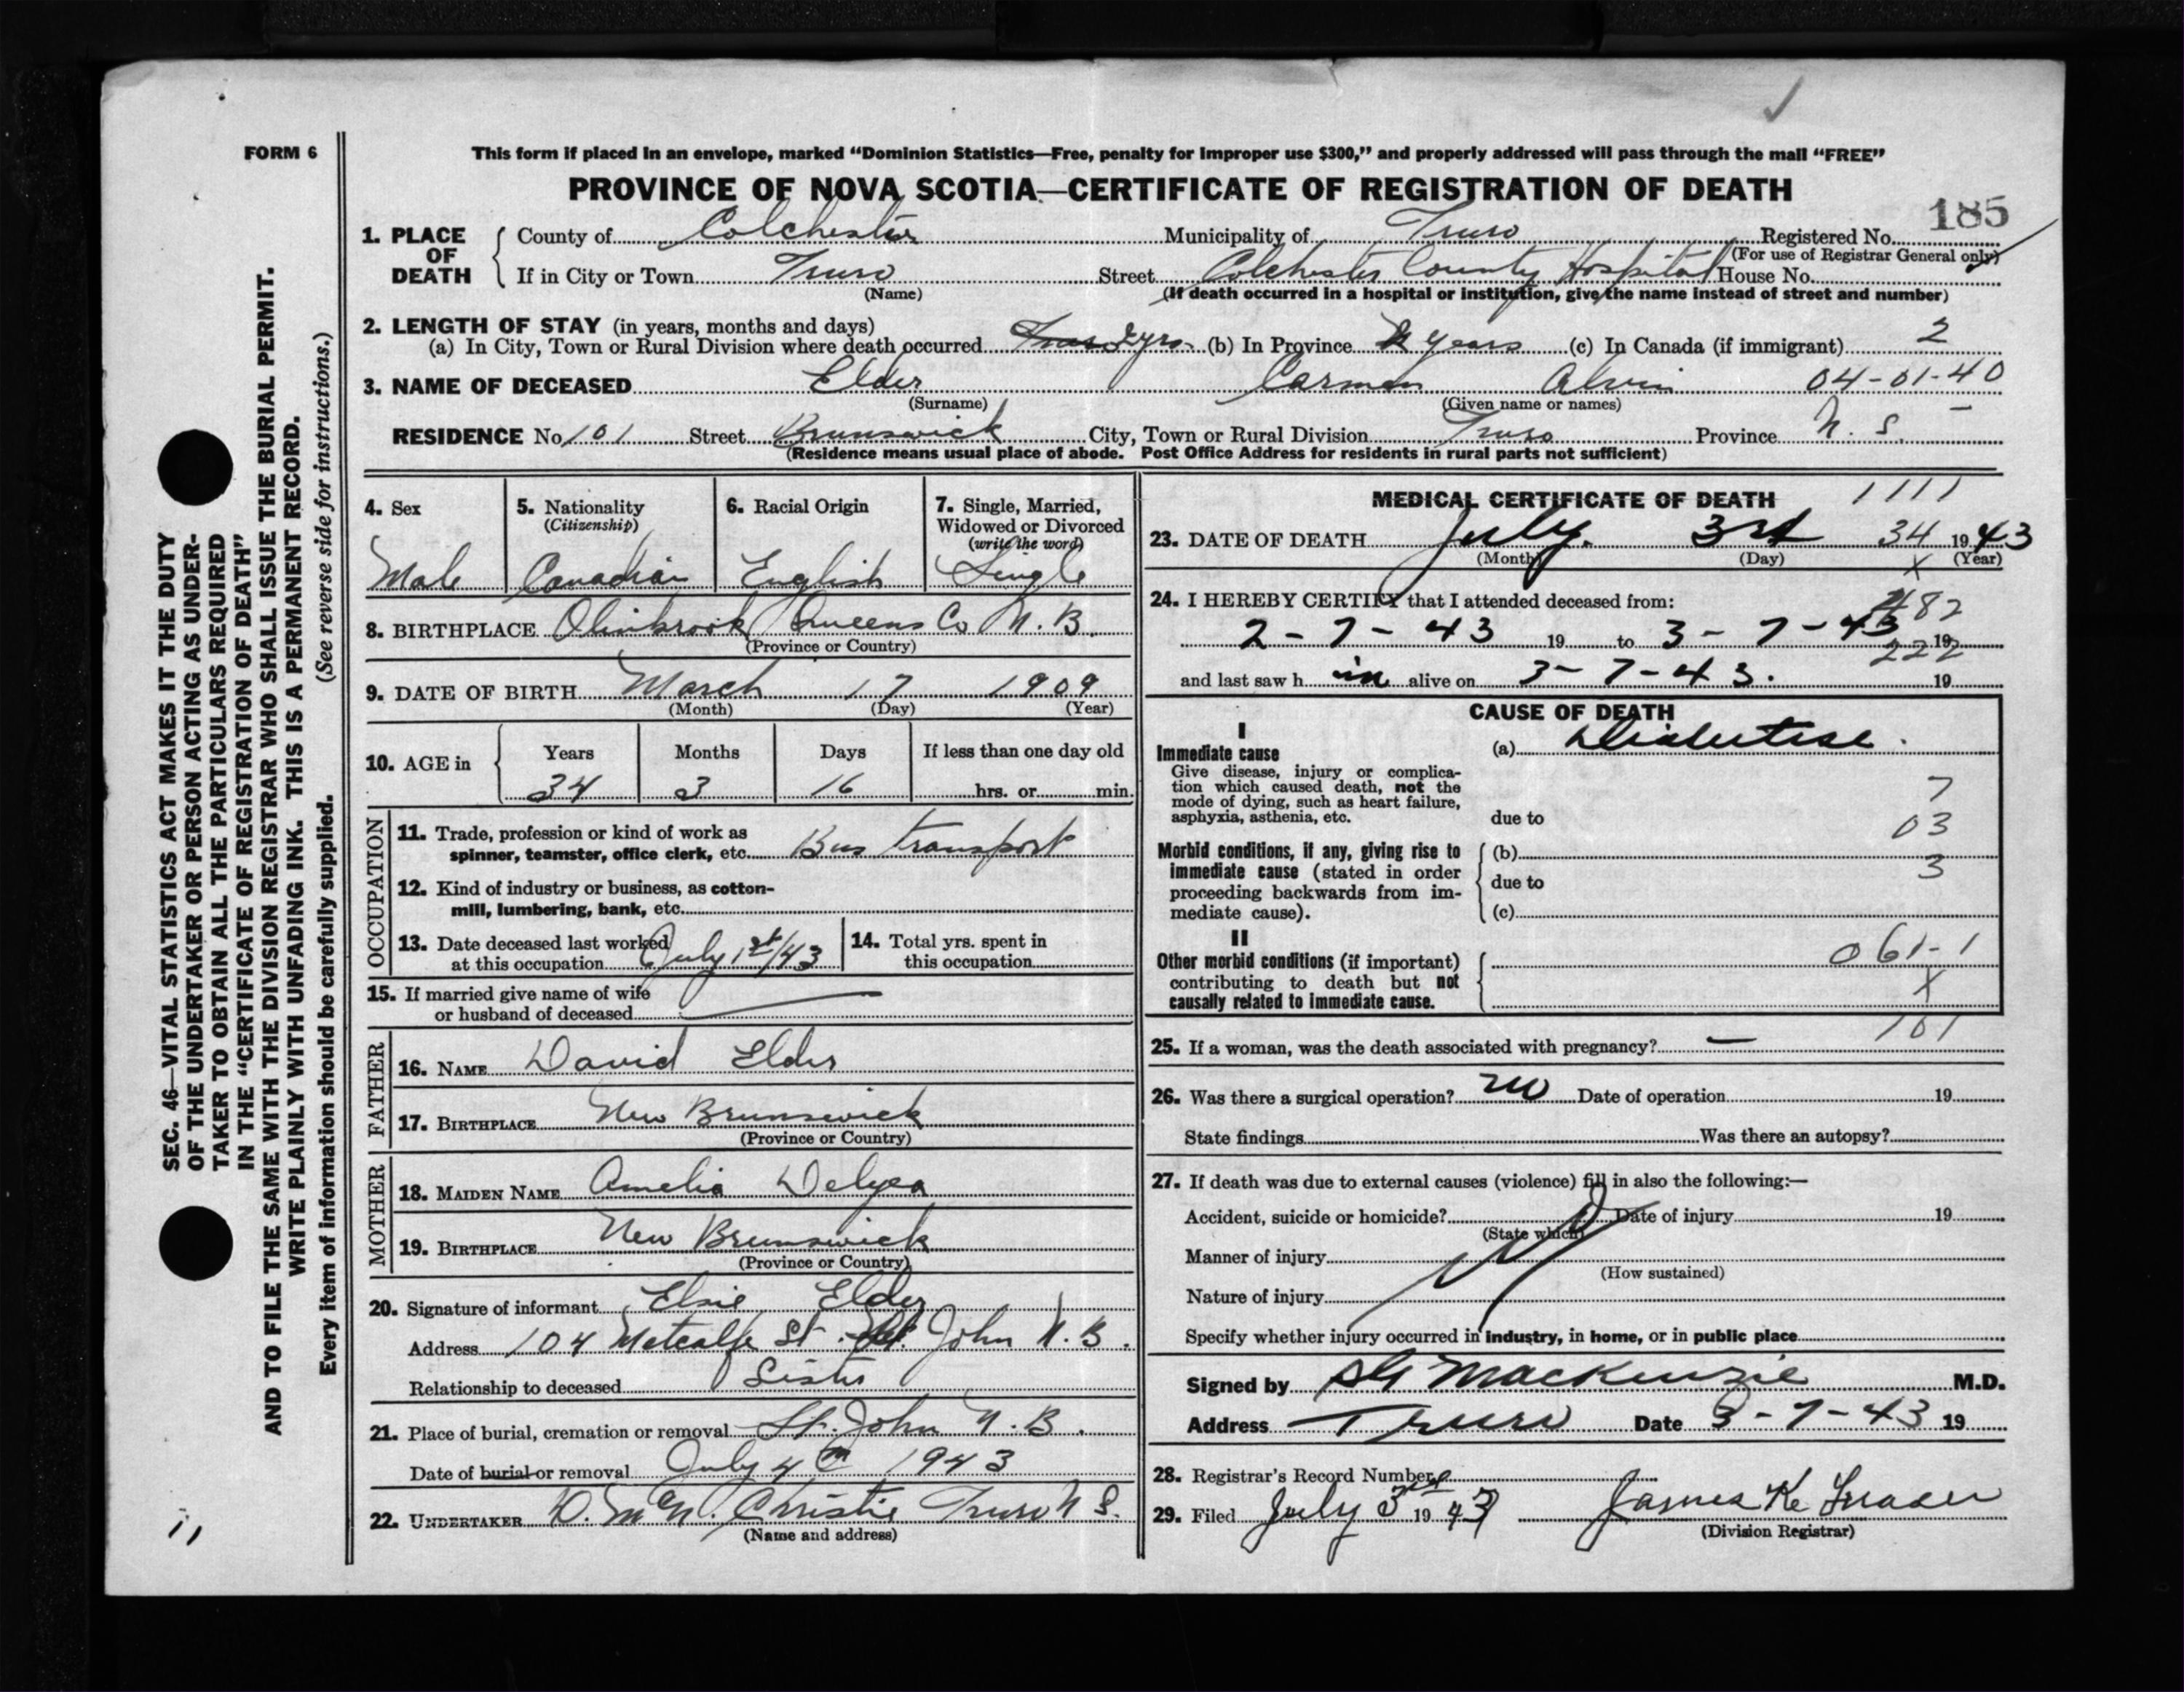 FORM 6
This form if placed in an envelope, marked “Dominion Statistics—Free, penalty for improper use $300,” and properly addressed will pass through the mail “FREE”
PROVINCE OF NOVA SCOTIA—CERTIFICATE OF REGISTRATION OF DEATH
185
1. PLACE OF DEATH County of Colchester Municipality of Truro Registered No.
(For use of Registrar General only)
If in City or Town Truro Street Colchester County Hospital House No.
(Name) (If death occurred in a hospital or institution, give the name instead of street and number)
2. LENGTH OF STAY (in years, months and days)
(a) In City, Town or Rural Division where death occurred 2 yrs. (b) In Province 2 years (c) In Canada (if immigrant) 2
3. NAME OF DECEASED Elder Carman Alvin 04-01-40
(Surname) (Given name or names)
RESIDENCE No. 101 Street Brunswick City, Town or Rural Division Truro Province N. S. –
(Residence means usual place of abode. Post Office Address for residents in rural parts not sufficient)
4. Sex 5. Nationality 6. Racial Origin 7. Single, Married,
(Citizenship) Widowed or Divorced
(write the word)
Male Canadian English Single
8. BIRTHPLACE Queens Co N. B.
(Province or Country)
9. DATE OF BIRTH March 17 1909
(Month) (Day) (Year)
10. AGE in Years Months Days If less than one day old
34 3 16 hrs. or min.
OCCUPATION
11. Trade, profession or kind of work as
spinner, teamster, office clerk, etc. Bus transport
12. Kind of industry or business, as cotton-
mill, lumbering, bank, etc.
13. Date deceased last worked
at this occupation July 1st/43
14. Total yrs. spent in
this occupation
15. If married give name of wife
or husband of deceased
FATHER
16. NAME David Elder
17. BIRTHPLACE New Brunswick
(Province or Country)
MOTHER
18. MAIDEN NAME Amelia Delyea
19. BIRTHPLACE New Brunswick
(Province or Country)
20. Signature of informant Elsie Elder
Address 104 Metcalfe St. St. John N. B.
Relationship to deceased Sister
21. Place of burial, cremation or removal St. John N. B.
Date of burial or removal July 4th 1943
22. UNDERTAKER D. McN. Christie Truro N S.
(Name and address)
MEDICAL CERTIFICATE OF DEATH 1111
23. DATE OF DEATH July 3rd 34 1943
(Month) (Day) X (Year)
24. I HEREBY CERTIFY that I attended deceased from: 82
2-7-43 19 to 3-7-43 19
222
and last saw h im alive on 3-7-43. 19
CAUSE OF DEATH
I
Immediate cause (a)
Give disease, injury or complica-
tion which caused death, not the
mode of dying, such as heart failure,
asphyxia, asthenia, etc. due to
7
03
3
Morbid conditions, if any, giving rise to (b)
immediate cause (stated in order due to
proceeding backwards from im-
mediate cause). (c)
II
Other morbid conditions (if important) 061-1
contributing to death but not X
causally related to immediate cause.
101
25. If a woman, was the death associated with pregnancy? —
26. Was there a surgical operation? no Date of operation 19
State findings Was there an autopsy?
27. If death was due to external causes (violence) fill in also the following:—
Accident, suicide or homicide? Date of injury 19
(State which)
Manner of injury
(How sustained)
Nature of injury
Specify whether injury occurred in industry, in home, or in public place
Signed by MacKenzie M.D.
Address Truro Date 3-7-43 19
28. Registrar's Record Number
29. Filed July 3rd 1943 James K. Fraser
(Division Registrar)
SEC. 46—VITAL STATISTICS ACT MAKES IT THE DUTY
OF THE UNDERTAKER OR PERSON ACTING AS UNDER-
TAKER TO OBTAIN ALL THE PARTICULARS REQUIRED
IN THE “CERTIFICATE OF REGISTRATION OF DEATH”
AND TO FILE THE SAME WITH THE DIVISION REGISTRAR WHO SHALL ISSUE THE BURIAL PERMIT.
WRITE PLAINLY WITH UNFADING INK. THIS IS A PERMANENT RECORD.
(See reverse side for instructions.)
Every item of information should be carefully supplied.
11